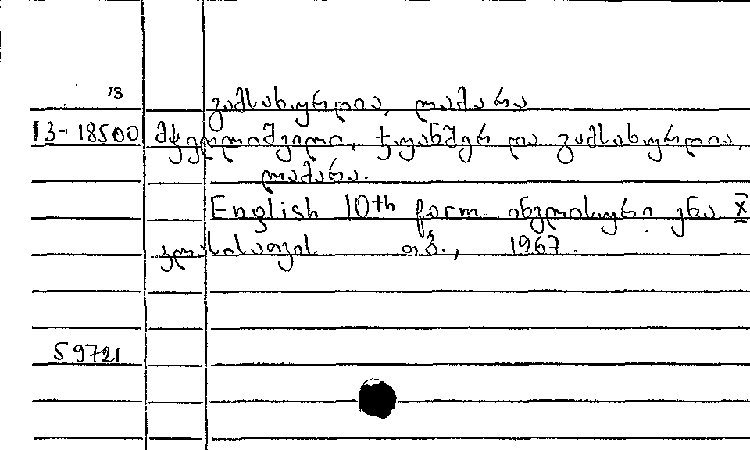 13
გამსახურდია, ლამარა
13-18500 მჭედლიშვილი, ჯუანშერ და გამსახურდია,
ლამარა.
English 10th form. ინგლისური ენა X
კლასისათვის თბ., 1967.
59721